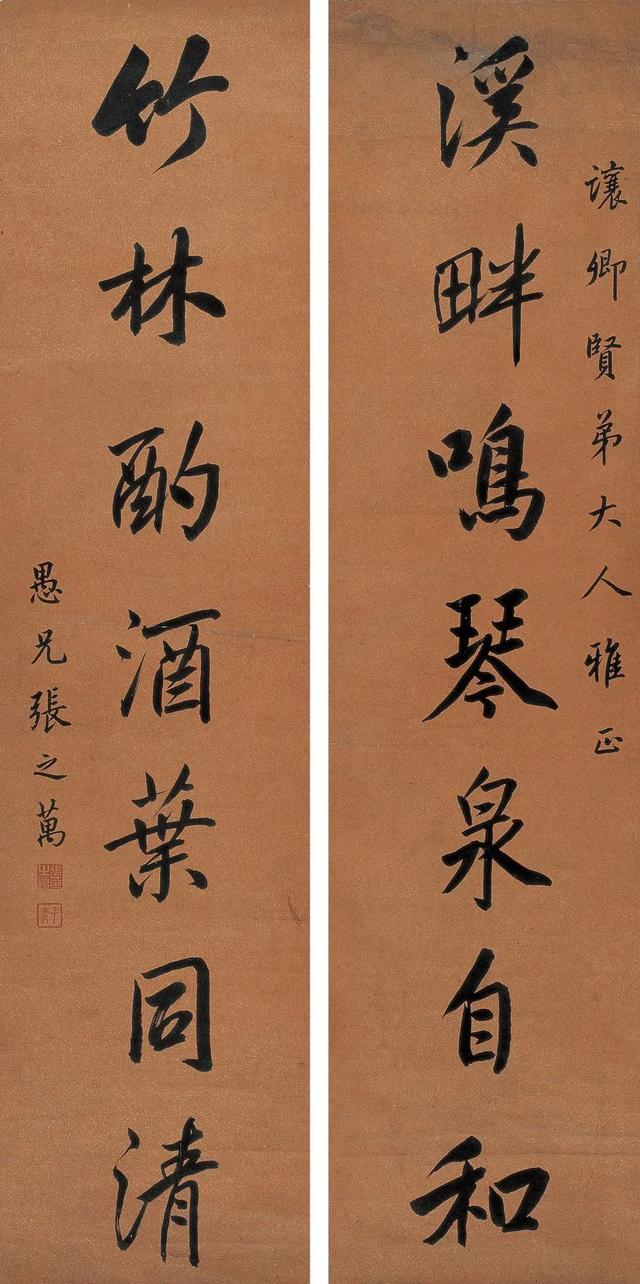 讓卿賢弟大人雅正
溪畔鳴琴泉自和
竹林酌酒葉同清
愚兄張之萬